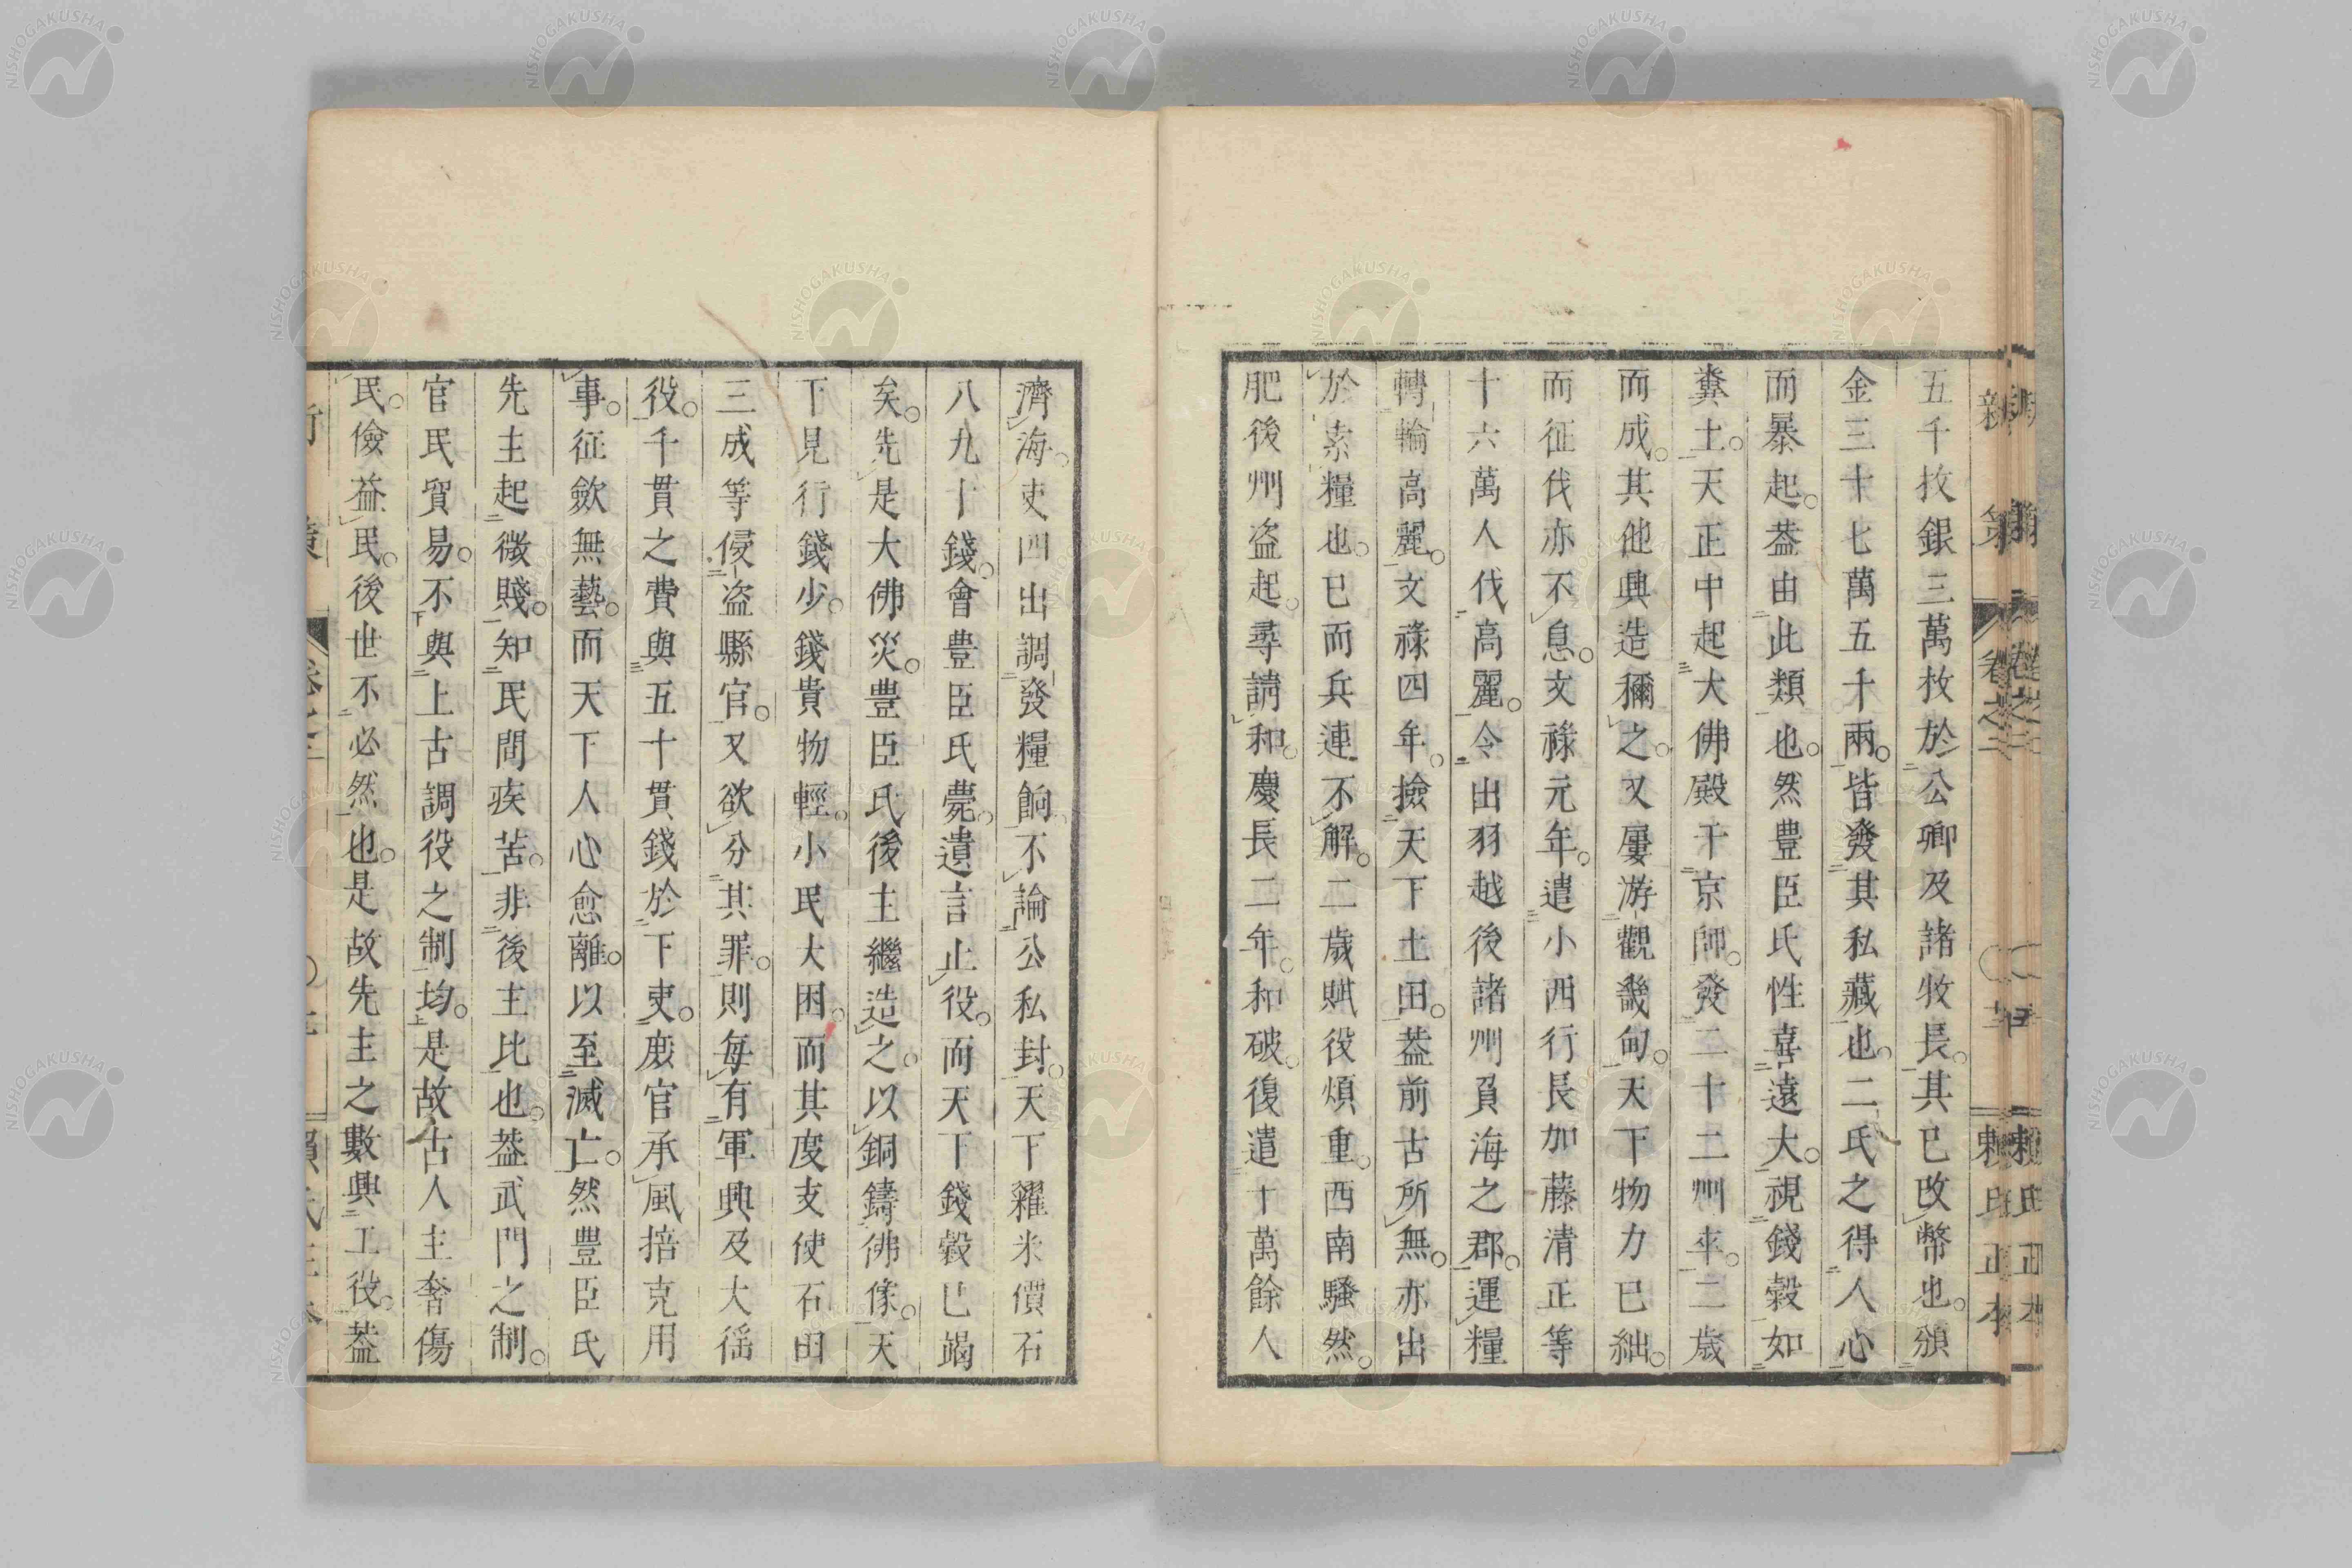 五千枚銀三萬枚於公卿及諸牧長。其已改幣也。頒
金三十七萬五千兩。皆發其私藏也。二氏之得人心
而暴起。蓋由此類也。然豊臣氏性喜遠大。視錢穀如
糞土。天正中起大佛殿于京師。發二十二州卒。二歲
而成。其他興造稱之。又屢游觀畿甸。天下物力已絀。
而征伐亦不息。文祿元年。遣小西行長加藤清正等
十六萬人伐高麗。令出羽越後諸州負海之郡。運糧
轉輸高麗。文祿四年。撿天下土田。蓋前古所無。亦出
於索糧也。已而兵連不解。二歲賦役煩重。西南騷然。
肥後州盗起。尋請和。慶長二年。和破。復遣十萬餘人
濟海。吏四出調發糧餉。不論公私封。天下糴米價石
八九十錢。會豊臣氏薨。遺言止役。而天下錢穀已竭
矣。先是大佛災。豊臣氏後主繼造之。以銅鑄佛像。天
下見行錢少。錢貴物輕。小民大困。而其度支使石田
三成等侵盗縣官。又欲分其罪。則每有軍興及大徭
役。千貫之費與五十貫錢於下吏。廢官承風掊克用
事。征斂無藝。而天下人心愈離。以至滅亡。然豊臣氏
先主起微賤。知民間疾苦。非後主比也。蓋武門之制。
官民貿易。不與上古調役之制均。是故古人主奢傷
民。儉益民。後世不必然也。是故先主之數興工役。蓋
新策
卷之二
賴氏正本
NISHOGAKUSHA